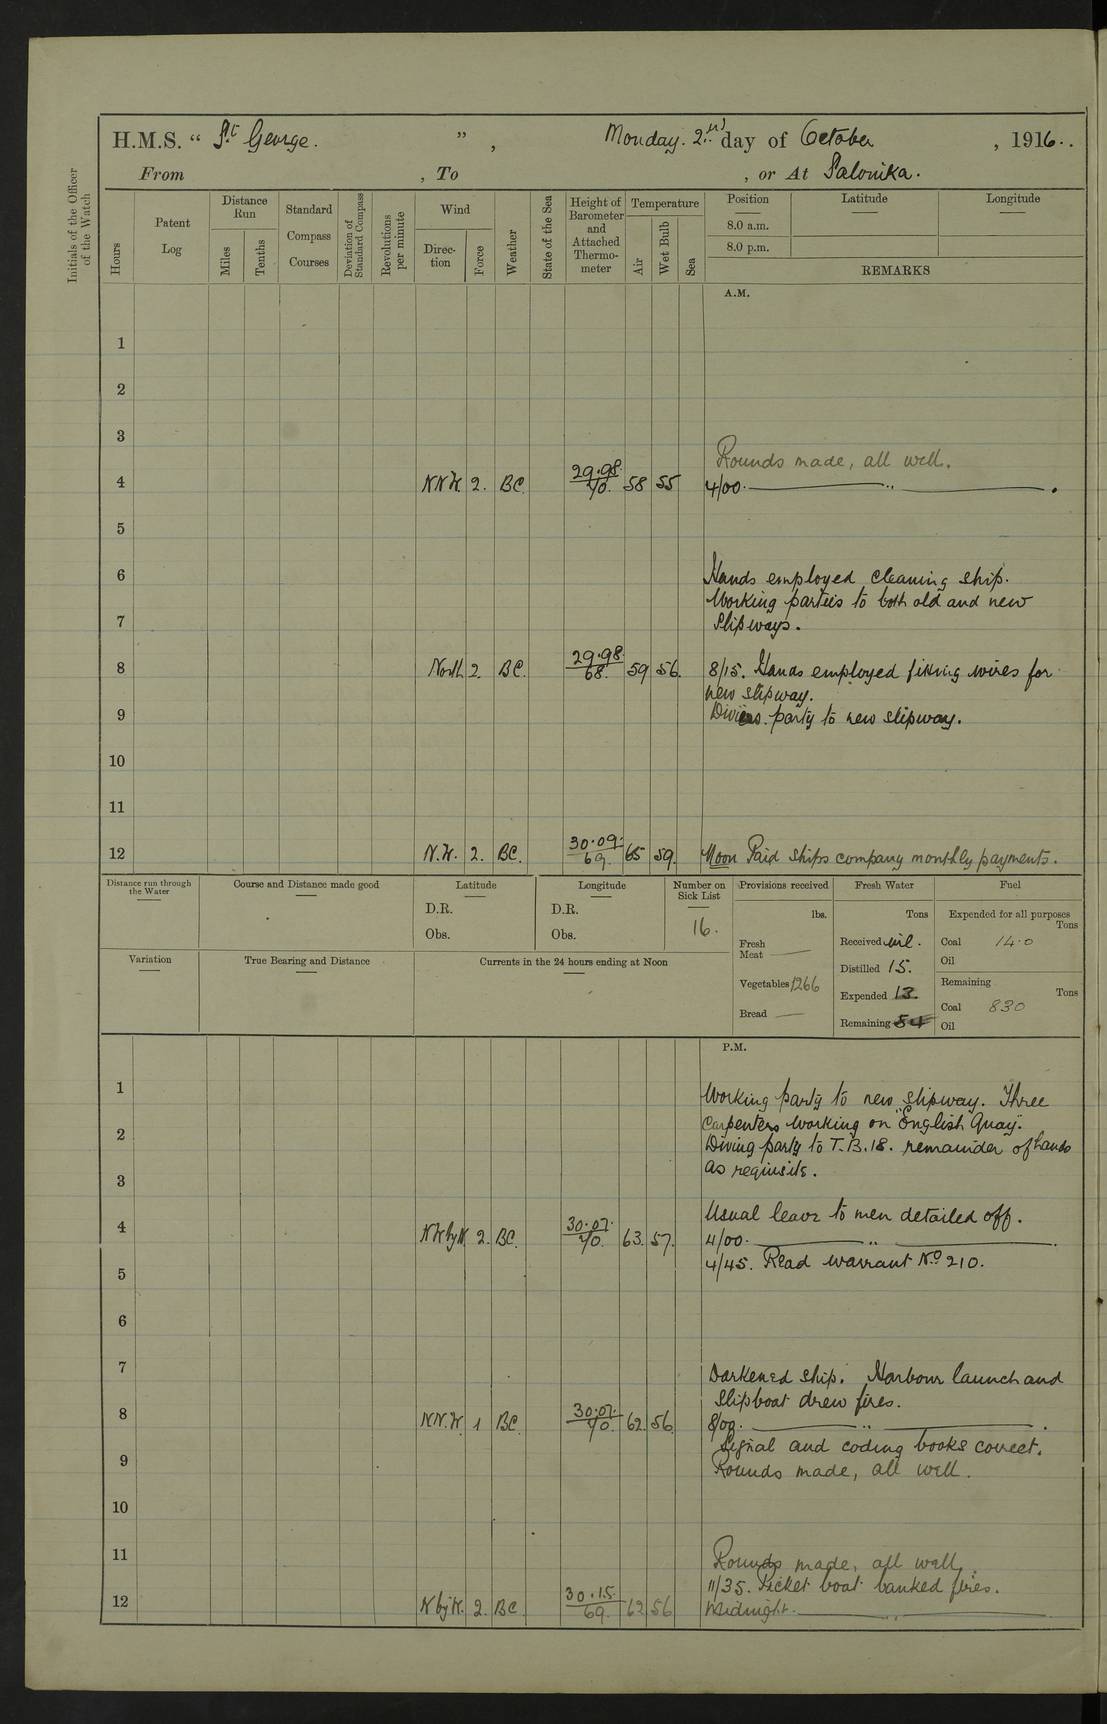 H.M.S. " St George. ", Monday. 2nd day of October, 1916..
From , To , or At Salonika.
Initials of the Officer of the Watch
Hours
Patent Log
Distance Run
Miles
Tenths
Standard Compass Courses
Deviation of Standard Compass
Revolutions per minute
Wind
Direction
Force
Weather
State of the Sea
Height of Barometer and Attached Thermometer
Temperature
Air
Wet Bulb
Sea
Position Latitude Longitude
8.0 a.m.
8.0 p.m.
REMARKS
A.M.
1
2
3
Rounds made, all well.
4 NNW. 2. BC. 29.98./70. 58 55 4/00. ——— " ———.
5
6 Hands employed cleaning ship.
Working parties to both old and new
7 Slipways.
8 North 2. BC. 29.98./68. 59 56. 8/15. Hands employed fitting wires for
new slipway.
9 Divers party to new slipway.
10
11
12 N.W. 2. BC. 30.09./69. 65 59. Noon Paid ships company monthly payments.
Distance run through the Water
Course and Distance made good
Latitude
D.R.
Obs.
Longitude
D.R.
Obs.
Number on Sick List
16.
Provisions received
lbs.
Fresh Meat —
Vegetables 1266
Bread —
Fresh Water
Tons
Received nil.
Distilled 15.
Expended 13.
Remaining 54
Fuel
Expended for all purposes
Tons
Coal 14.0
Oil
Remaining
Tons
Coal 830
Oil
Variation
True Bearing and Distance
Currents in the 24 hours ending at Noon
P.M.
1 Working party to new slipway. Three
2 Carpenters working on "English Quay".
Diving party to T.B.18. remainder of hands
3 as requisite.
Usual leave to men detailed off.
4 NW by N 2. BC. 30.07./70. 63. 57. 4/00. ——— " ———.
4/45. Read warrant No 210.
5
6
7 Darkened ship. Harbour launch and
Slipboat drew fires.
8 NN.W. 1 BC. 30.07./70. 62 56. 8/00. ——— " ———.
Signal and coding books correct.
9 Rounds made, all well.
10
11 Rounds made, all well.
11/35. Picket boat banked fires.
12 N by W. 2. BC. 30.15./69. 62 56 Midnight. ——— " ———